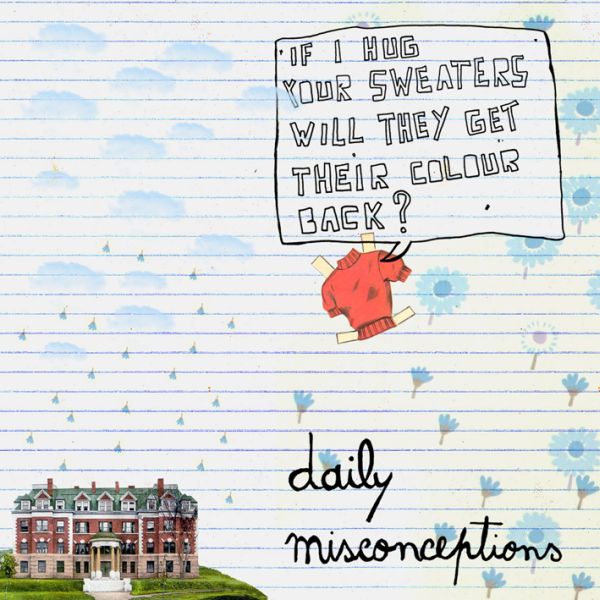 IF I HUG
YOUR SWEATERS
WILL THEY GET
THEIR COLOUR
BACK?
daily
misconceptions